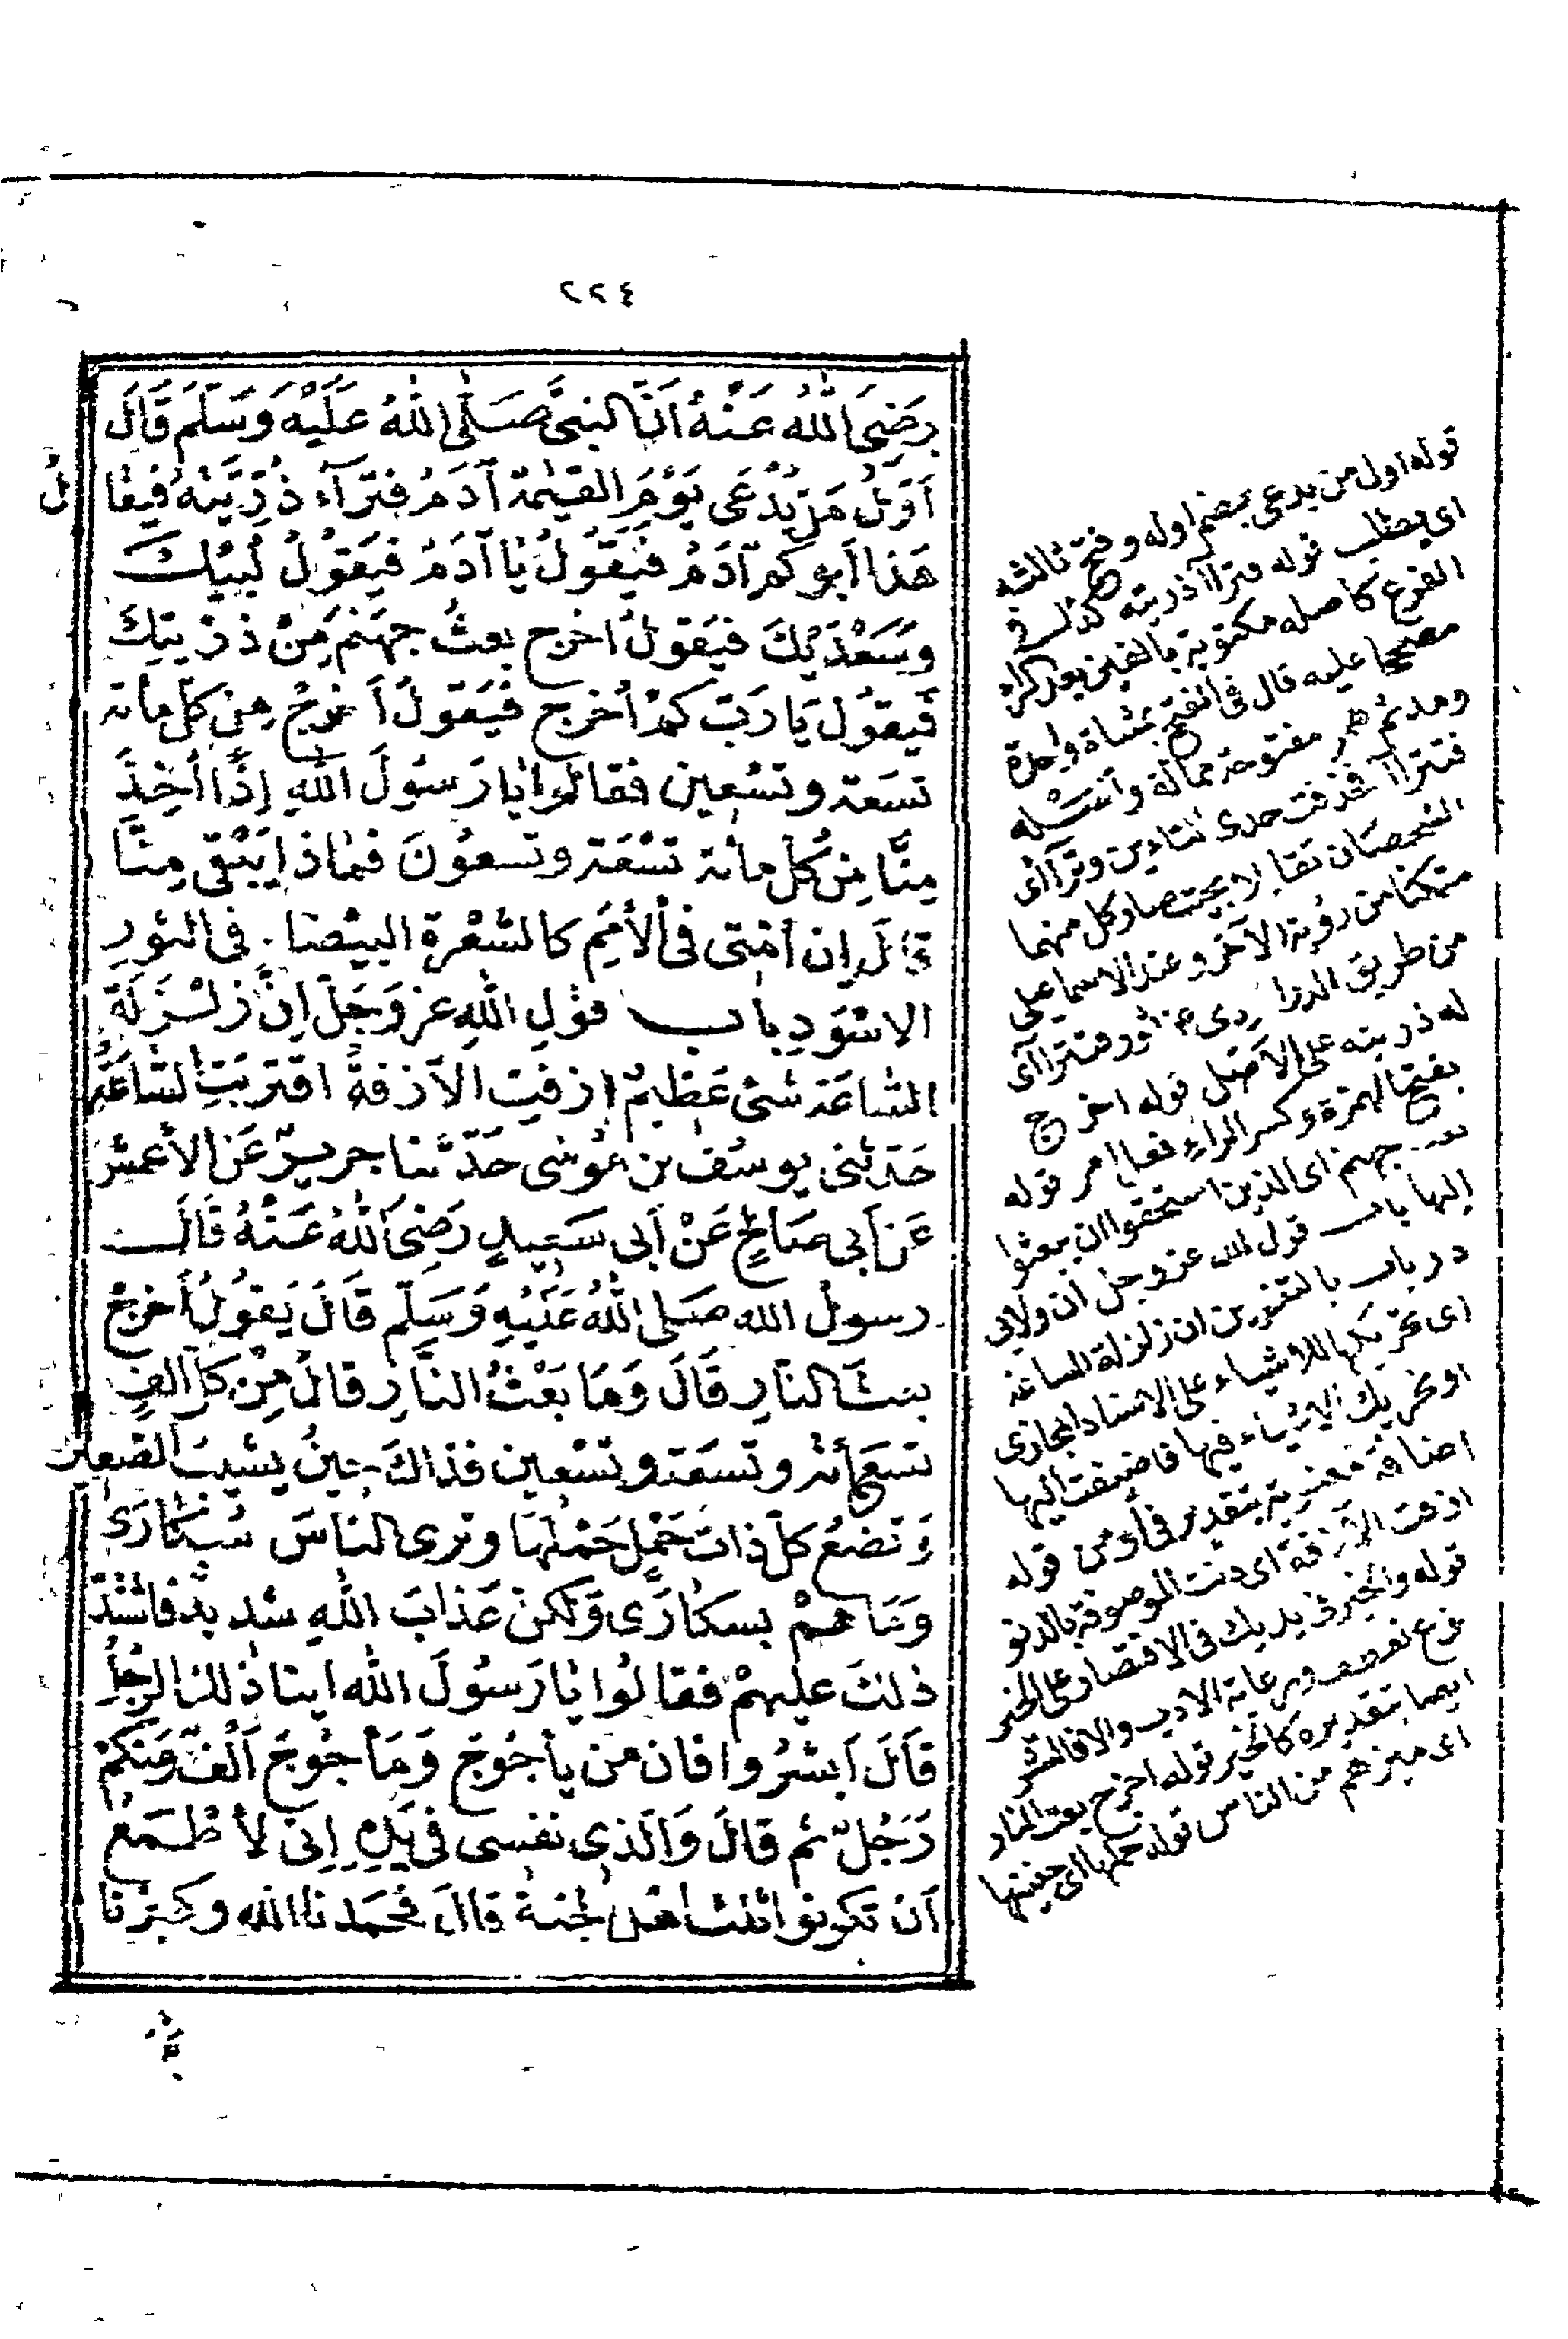 ٢٢٤
رَضِيَ اللهُ عَنْهُ اَنَّ النبىَّ صَلَّى اللهُ عَلَيْهِ وَسَلَّمَ قَالَ
اَوَّلُ مَنْ يُدْعَى يَوْمَ القيٰمة آدَمُ فترَآءَ ذُرِّيَّتُهُ فيقالُ
هَذا اَبوكم آدَمُ فيَقُولُ يَا آدَمُ فيَقُولُ لَبيْكَ
وَسَعْدَيْكَ فيَقولُ اَخرج بعثَ جهنمَ مِنْ ذريتِكَ
فيقولُ يَا رَبّ كَمْ اُخرج فيَقولُ اَخرِجْ مِن كلّ مائة
تسعَة وتسْعين فقالوا يا رَسُولَ اللهِ اِذَا اُخِذَ
مِنَّا مِنْ كُل مائة تسْعَة وتسعُونَ فماذا يَبْقى مِنَّا
قالَ اِن اُمّتى فى الأُمَمِ كالشعْرة البيْضا فى الثورِ
الاسْوَدِ باب قوْلِ اللهِ عز وَجَلَّ اِنَّ زلْزَلَةَ
السَّاعَة شئ عَظيمٌ ازفتِ الآزفةُ اقتربَتِ السَّاعَةُ
حَدثنى يوسُف بن مُوسٰى حَدّثنا جريرٌ عَن الأعمش
عَن اَبى صَالحٍ عَنْ اَبى سَعيدٍ رَضِيَ اللهُ عَنْهُ قَالَ
رسولُ الله صَلى اللهُ عَلَيْهِ وَسَلّم قَالَ يَقولُ اَخرِجْ
بعثَ النّارِ قَالَ وَمَا بَعْثُ النَّارِ قالَ مِنْ كلّ الفٍ
تسعمائة وتسعَة وتسْعين فذاكَ حِينُ يَشيبُ الصّغيرُ
وَتضعُ كلّ ذات حَمْلٍ حَمْلَهَا وترى الناسَ سُكَارَى
وَمَا همْ بسكَارَى وَلكنّ عَذابَ اللهِ شديدٌ فاشْتَدّ
ذلكَ عليهمْ فقالُوا يَا رَسُولَ الله اينا ذلك الرجُلُ
قَالَ اَبشرُوا فان من يأجُوجَ وَمَأجُوجَ اَلفٌ وَمنكمْ
رَجُلٌ ثم قالَ وَالذى نفسى فى يَدِهِ اِنى لأطْمَعُ
اَنْ تكونوا ثلث اَهْل الجنة قالَ فحَمَدنا الله وكبّرنا
قوله اول من يدعى بضم اوله وفتح ثالثه
اى يطلب قوله فتراآ ذريته كذلك فى
الفرع كاصله مكتوبة بالفين بعد الراء
مصححا عليه قال فى الفتح بمثناة واحدة
ومد ثم همزة مفتوحة ممالة واصله
فتتراآ فحذفت احدى التاءين وتراآى
الشخصان تقابلا بحيث صار كل منهما
متمكنا من رؤية الآخر وعند الاسماعيلى
من طريق الدراوردى عن ثور فتتراآى
له ذريته على الأصل قوله اخرج
بفتح الهمزة وكسر الراء فعل امر قوله
بعث جهنم اى الذين استحقوا ان يبعثوا
اليها باب قول الله عز وجل ان ولابى
ذر باب بالتنوين ان زلزلة الساعة
اى تحريكها للاشياء على الاسناد المجازى
او تحريك الاشياء فيها فاضيفت اليها
اضافة معنوية بتقدير فى او من قوله
ازفت الازفة اى دنت الموصوفة بالدنو
قوله والخير فى يديك فى الاقتصار على الخير
نوع تعطف ورعاية الادب والا فالشر
ايضا بتقديره كالخير قوله اخرج بعث النار
اى ميزهم من الناس قوله حملها اى جنينها